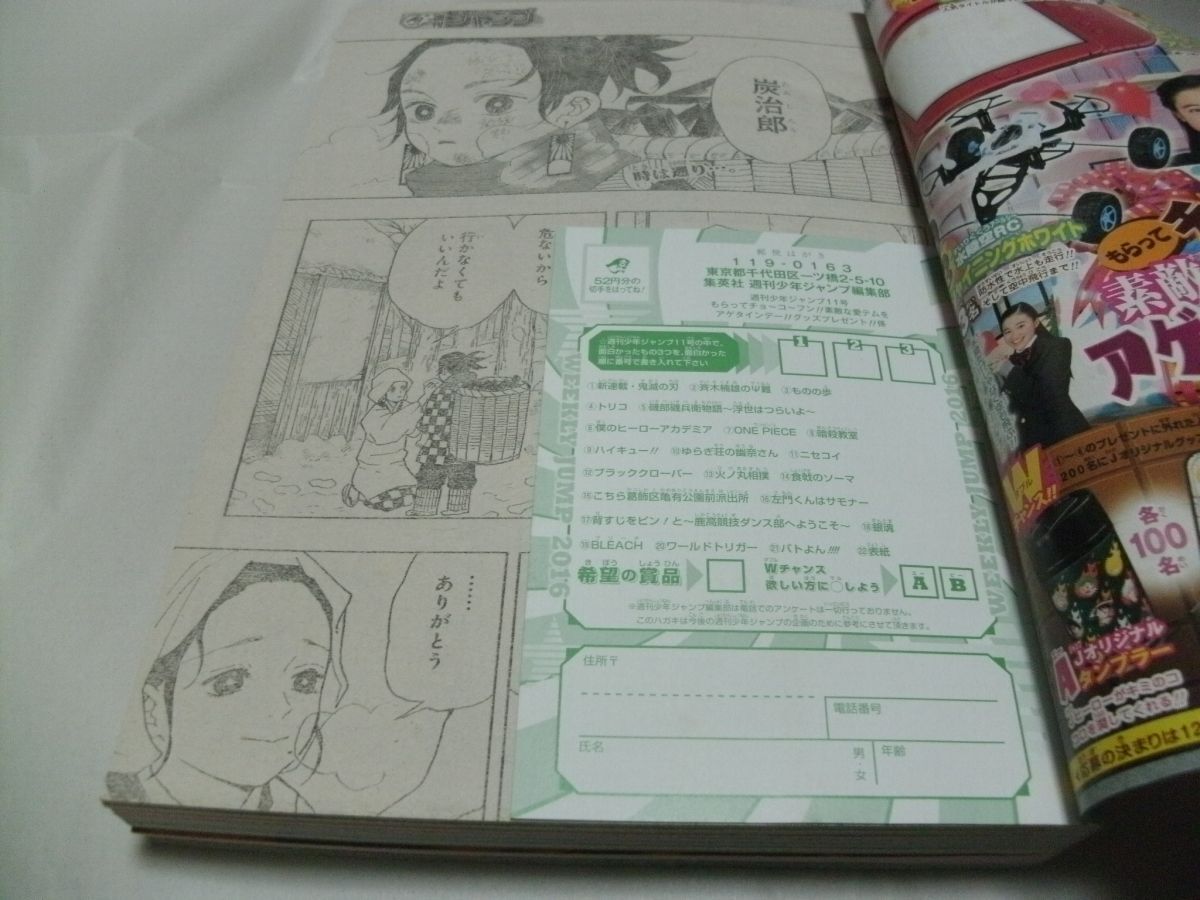 ジャンプ
炭治郎
時は遡り…。
危ないから
行かなくても
いいんだよ
……
ありがとう
郵便はがき
119-0163
東京都千代田区一ツ橋2-5-10
集英社 週刊少年ジャンプ編集部
週刊少年ジャンプ11号
もらってチョーコーフン!!素敵な愛テムを
アゲタインデー!!グッズプレゼント!!係
52円分の
切手をはってね!
☆週刊少年ジャンプ11号の中で、
面白かったもの3つを、面白かった
順に番号で書き入れて下さい
1 2 3
①新連載・鬼滅の刃 ②斉木楠雄のΨ難 ③ものの歩
④トリコ ⑤磯部磯兵衛物語～浮世はつらいよ～
⑥僕のヒーローアカデミア ⑦ONE PIECE ⑧暗殺教室
⑨ハイキュー!! ⑩ゆらぎ荘の幽奈さん ⑪ニセコイ
⑫ブラッククローバー ⑬火ノ丸相撲 ⑭食戟のソーマ
⑮こちら葛飾区亀有公園前派出所 ⑯左門くんはサモナー
⑰背すじをピン!と～鹿高競技ダンス部へようこそ～ ⑱銀魂
⑲BLEACH ⑳ワールドトリガー ㉑バトよん!!!! ㉒表紙
希望の賞品
Wチャンス
欲しい方に○しよう
A B
※週刊少年ジャンプ編集部は電話でのアンケートは一切行っておりません。
このハガキは今後の週刊少年ジャンプの企画のために参考にさせて頂きます。
住所〒
電話番号
氏名
男・女
年齢
WEEKLY JUMP-2016
WEEKLY JUMP-2016
RC
ニングホワイト
防水性で水上も走行!!
そして空中飛行まで!!
もらって
素敵
アゲ
①～④のプレゼントに外れた
200名にJオリジナルグッ
チャンス!!
各
100
名
A Jオリジナル
タンブラー
ヒーローがキミのコ
コロを潤してくれる!!
の決まりは12